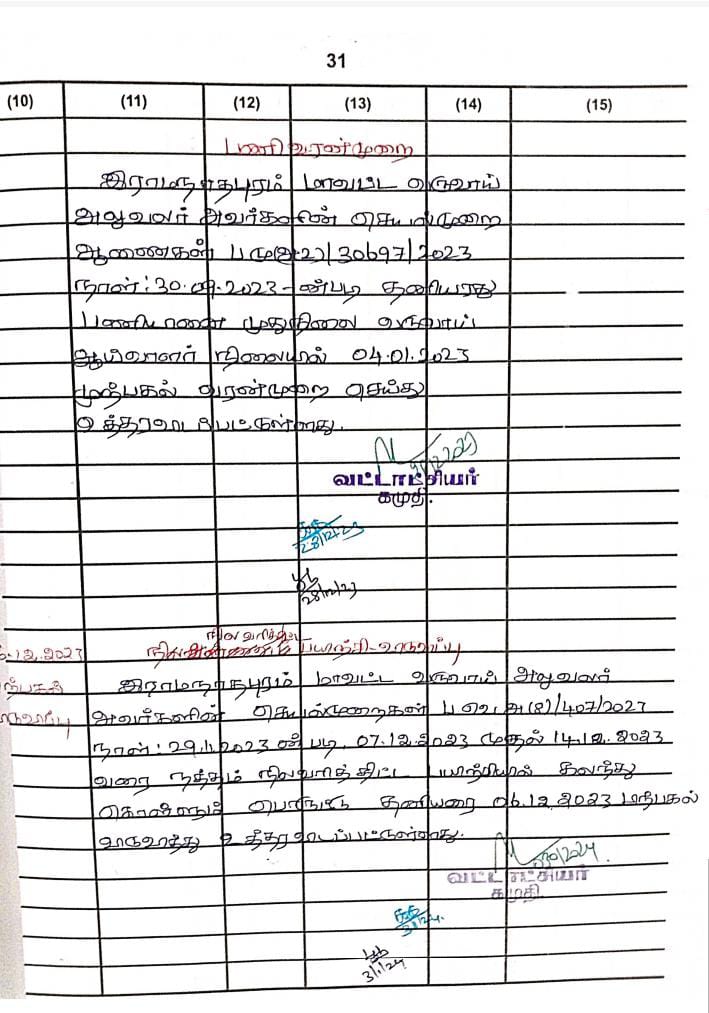 31
(10) (11) (12) (13) (14) (15)
பணி வரன்முறை
இராமநாதபுரம் மாவட்ட வருவாய்
அலுவலர் அவர்களின் செயல்முறை
ஆணைகள் பமு(அ2)/30697/2023
நாள்: 30.09.2023-ன்படி தனியரது
பணியினை முதுநிலை வருவாய்
ஆய்வாளர் நிலையில் 04.01.2023
முற்பகல் வரன்முறை செய்து
உத்தரவிடப்பட்டுள்ளது.
வட்டாட்சியர்
கமுதி.
28/12/23
28/12/23
நிலவரித்திட்ட
.12.2023 பயிற்சி-விடுவிப்பு
பிற்பகல் இராமநாதபுரம் மாவட்ட வருவாய் அலுவலர்
விடுவிப்பு அவர்களின் செயல்முறைகள்
நாள்: 29.11.2023 ன் படி, 07.12.2023 முதல் 14.12.2023
வரை நத்தம் நிலவரித்திட்ட பயிற்சியில் கலந்து
கொள்ளும் பொருட்டு தனியரை 06.12.2023 பிற்பகல்
விடுவித்து உத்தரவிடப்பட்டுள்ளது.
வட்டாட்சியர்
கமுதி
3/1/24.
3/1/24